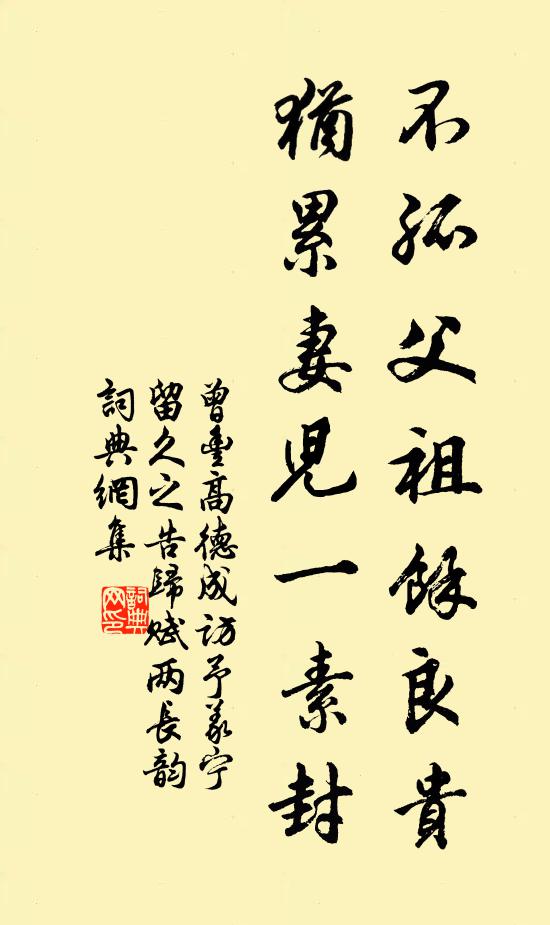 不孤父祖餘良貴
猶累妻兒一素封
曾豐高德成訪予義寧
留久之告歸賦兩長韵
詞典網集
詞典网印